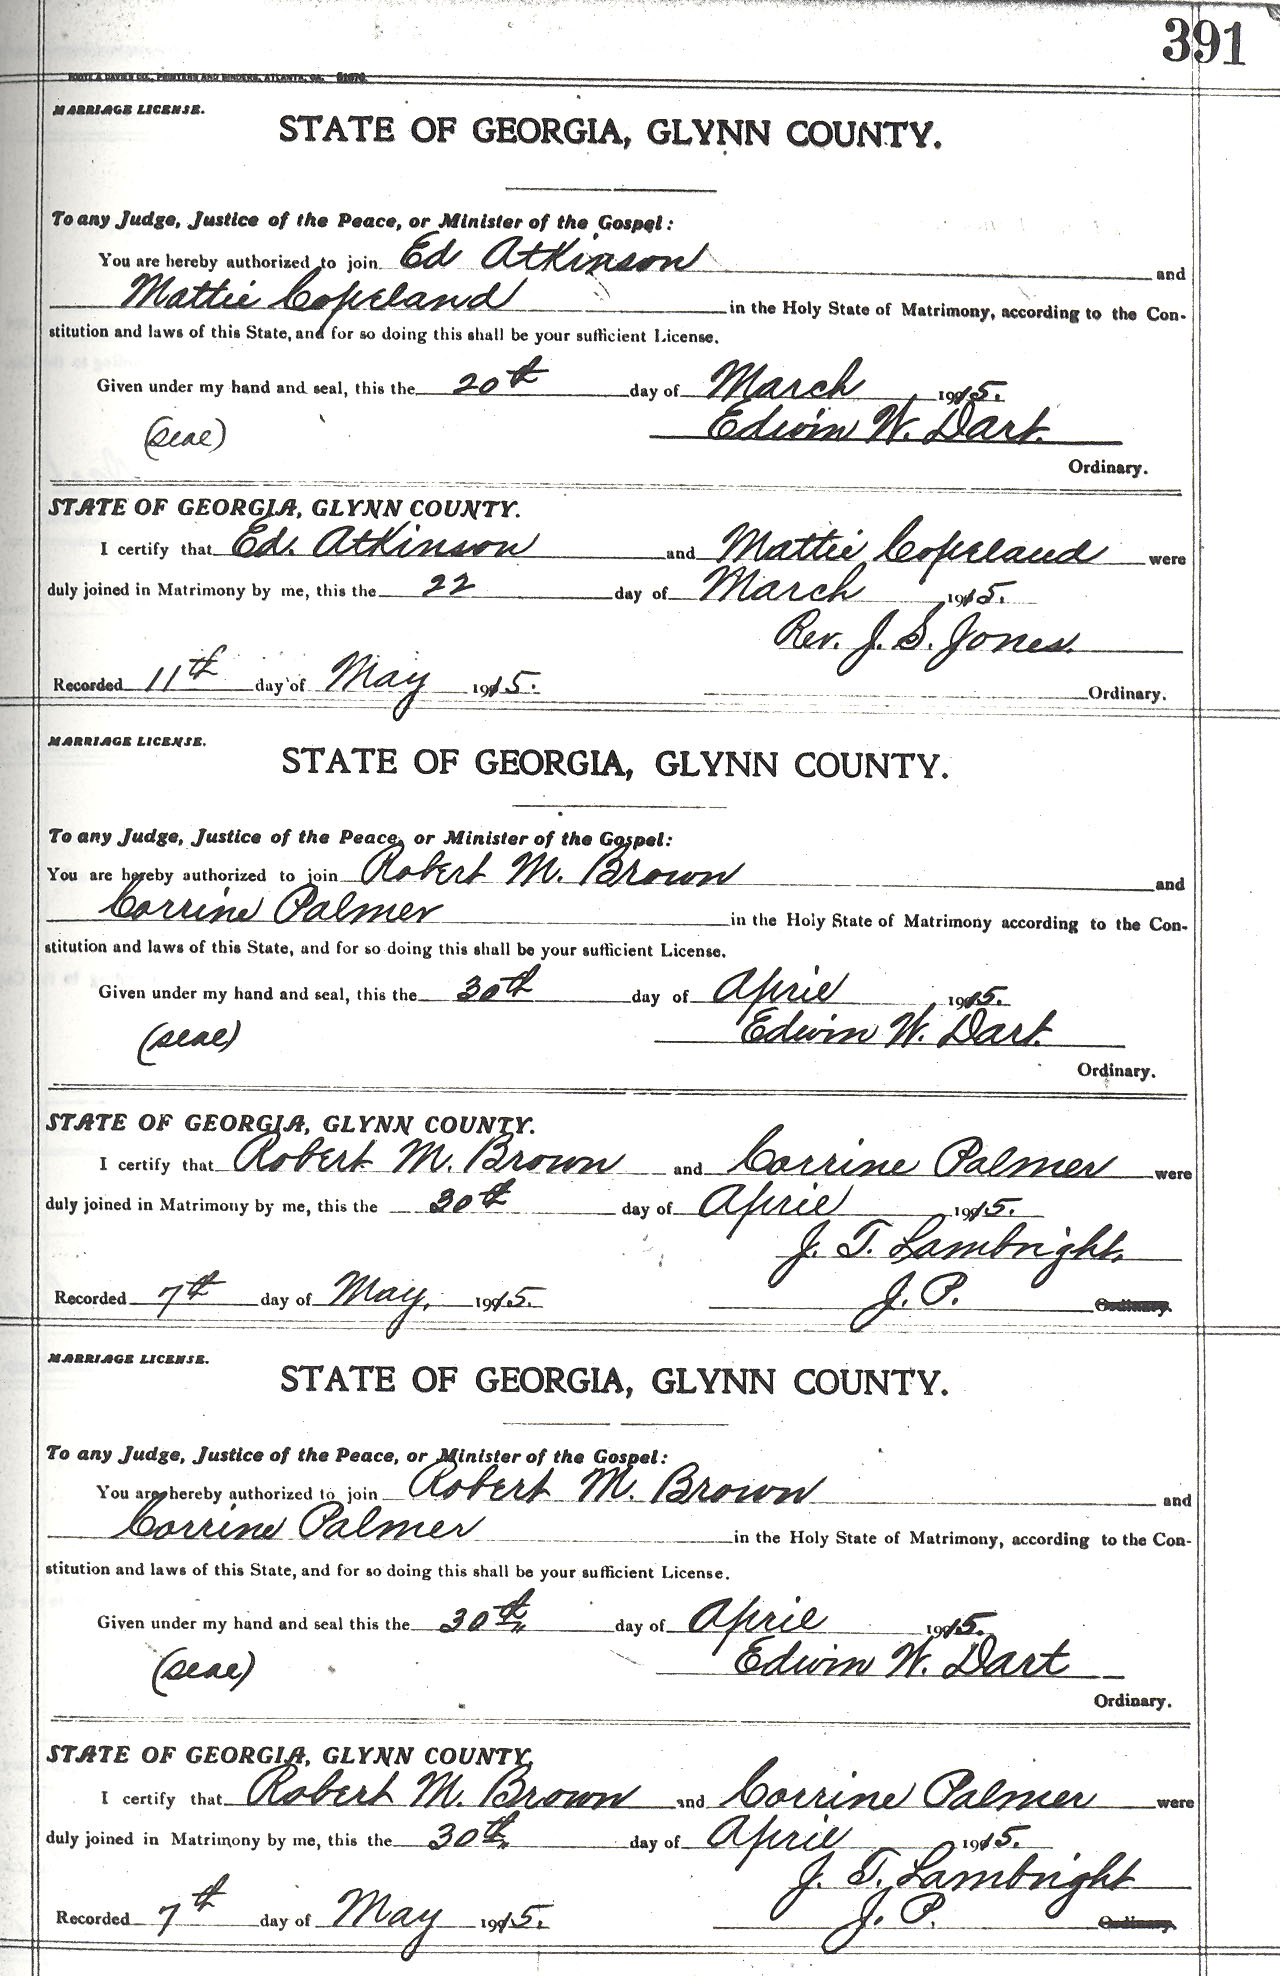 391
FOOTE & DAVIES CO., PRINTERS AND BINDERS, ATLANTA, GA.
MARRIAGE LICENSE.
STATE OF GEORGIA, GLYNN COUNTY.
To any Judge, Justice of the Peace, or Minister of the Gospel:
You are hereby authorized to join Ed Atkinson and
Mattie Copeland in the Holy State of Matrimony, according to the Con-
stitution and laws of this State, and for so doing this shall be your sufficient License.
Given under my hand and seal, this the 20th day of March 1915.
(seal) Edwin W. Dart.
Ordinary.
STATE OF GEORGIA, GLYNN COUNTY.
I certify that Ed. Atkinson and Mattie Copeland were
duly joined in Matrimony by me, this the 22 day of March 1915.
Rev. J. S. Jones.
Recorded 11th day of May 1915. Ordinary.
MARRIAGE LICENSE.
STATE OF GEORGIA, GLYNN COUNTY.
To any Judge, Justice of the Peace, or Minister of the Gospel:
You are hereby authorized to join Robert M. Brown and
Corrine Palmer in the Holy State of Matrimony according to the Con-
stitution and laws of this State, and for so doing this shall be your sufficient License.
Given under my hand and seal, this the 30th day of April 1915.
(seal) Edwin W. Dart.
Ordinary.
STATE OF GEORGIA, GLYNN COUNTY.
I certify that Robert M. Brown and Corrine Palmer were
duly joined in Matrimony by me, this the 30th day of April 1915.
J. T. Lambright.
Recorded 7th day of May, 1915. J. P. Ordinary.
MARRIAGE LICENSE.
STATE OF GEORGIA, GLYNN COUNTY.
To any Judge, Justice of the Peace, or Minister of the Gospel:
You are hereby authorized to join Robert M. Brown and
Corrine Palmer in the Holy State of Matrimony, according to the Con-
stitution and laws of this State, and for so doing this shall be your sufficient License.
Given under my hand and seal this the 30th day of April 1915.
(seal) Edwin W. Dart
Ordinary.
STATE OF GEORGIA, GLYNN COUNTY.
I certify that Robert M. Brown and Corrine Palmer were
duly joined in Matrimony by me, this the 30th day of April 1915.
J. T. Lambright
Recorded 7th day of May 1915. J. P. Ordinary.